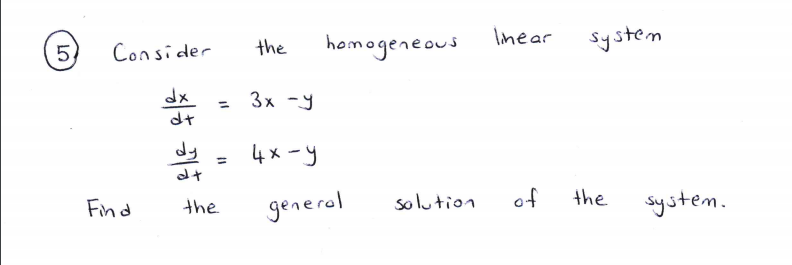 5 Consider the homogeneous linear system
dx/dt = 3x - y
dy/dt = 4x - y
Find the general solution of the system.